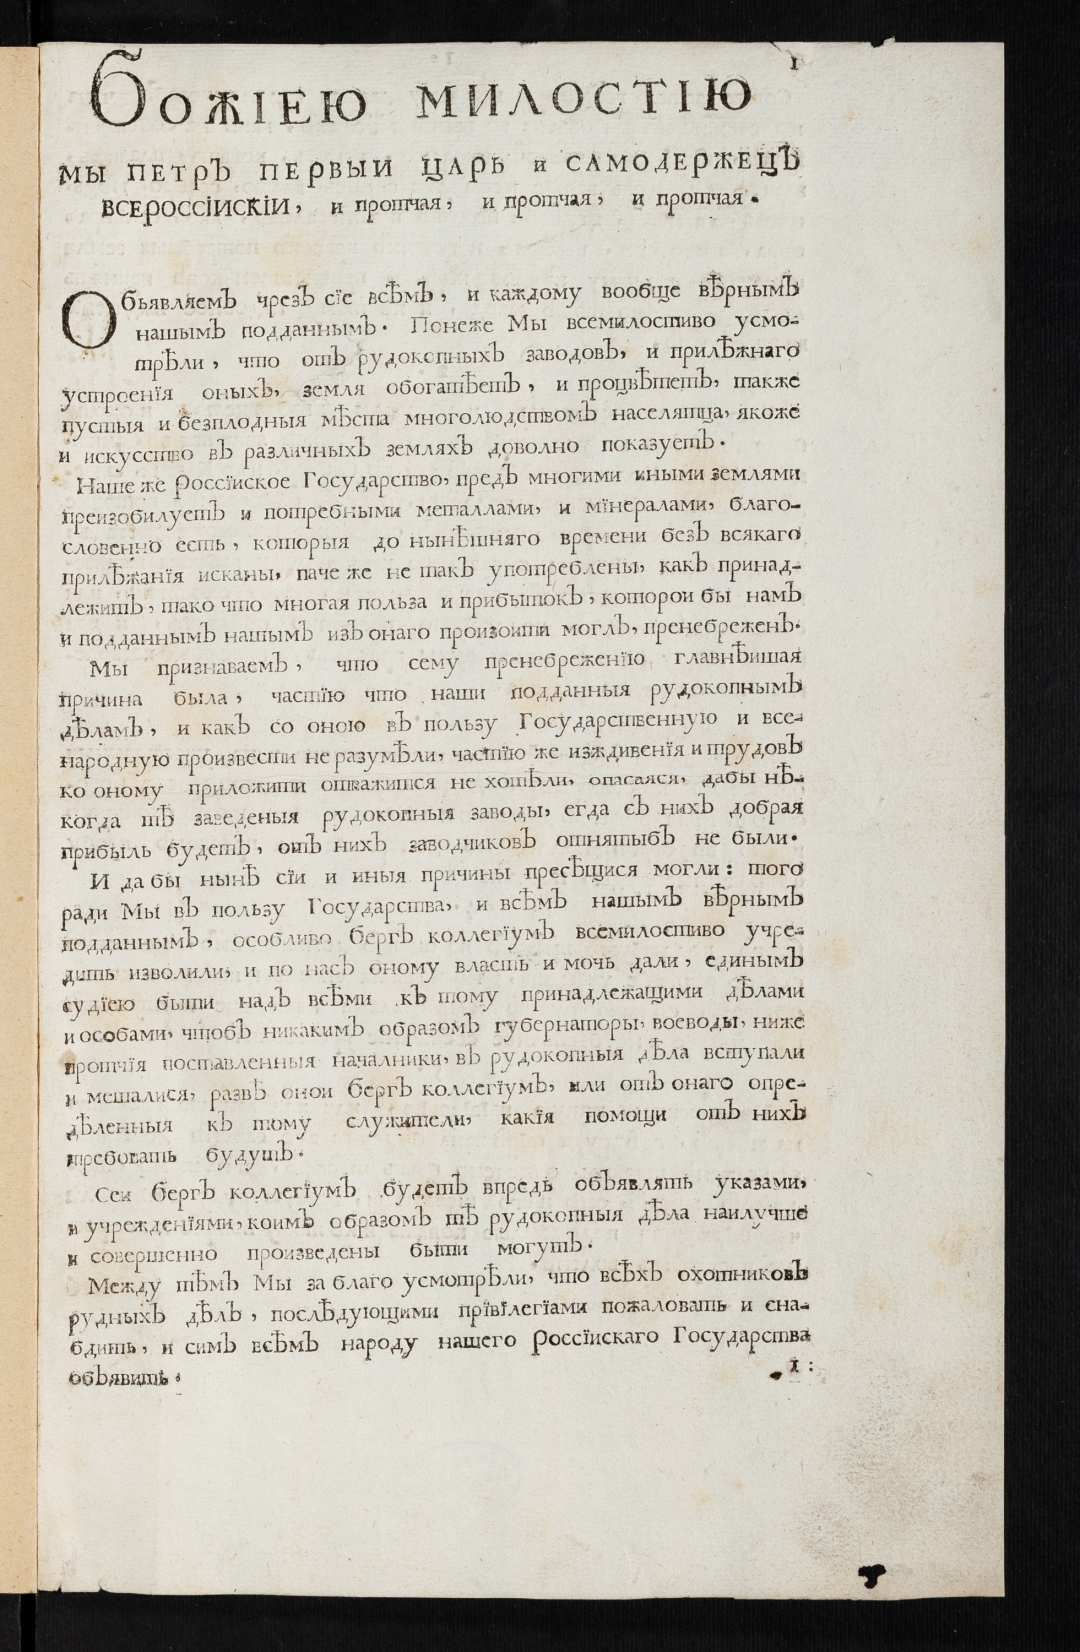 1
БОЖІЕЮ МИЛОСТІЮ
МЫ ПЕТРЪ ПЕРВЫИ ЦАРЬ и САМОДЕРЖЕЦЪ
ВСЕРОССІИСКІИ, и протчая, и протчая, и протчая.
Обьявляемъ чрезъ сїе всѣмъ, и каждому вообще вѣрнымъ
нашымъ подданнымъ. Понеже Мы всемилостиво усмо-
трѣли, что отъ рудокопныхъ заводовъ, и прилѣжнаго
устроенїя оныхъ, земля обогатѣетъ, и процвѣтетъ, также
пустыя и безплодныя мѣста многолюдствомъ населятца, якоже
и искусство въ различныхъ земляхъ доволно показуетъ.
Наше же Россїиское Государство, предъ многими иными землями
преизобилуетъ и потребными металлами, и мїнералами, благо-
словенно есть, которыя до нынѣшняго времени безъ всякаго
прилѣжанїя исканы, паче же не такъ употреблены, какъ принад-
лежитъ, тако что многая полза и прибытокъ, которои бы намъ
и подданнымъ нашымъ изъ онаго произоити моглъ, пренебреженъ.
Мы признаваемъ, что сему пренебреженїю главнѣишая
причина была, частїю что наши подданныя рудокопнымъ
дѣламъ, и какъ со оною въ пользу Государственную и все-
народную произвести не разумѣли, частїю же иждивенїя и трудовъ
ко оному приложити отважитися не хотѣли, опасаяся, дабы нѣ-
когда тѣ заведеныя рудокопныя заводы, егда съ нихъ добрая
прибыль будетъ, отъ нихъ заводчиковъ отнятыбъ не были.
И да бы нынѣ сїи и иныя причины пресѣщися могли: того
ради Мы въ пользу Государства, и всѣмъ нашымъ вѣрнымъ
подданнымъ, особливо бергъ коллегїумъ всемилостиво учре-
дить изволили, и по насъ оному власть и мочь дали, единымъ
судїею быти надъ всѣми къ тому принадлежащими дѣлами
и особами, чтобъ никакимъ образомъ губернаторы, воеводы, ниже
протчїя поставленныя началники, въ рудокопныя дѣла вступали
и мешалися, развѣ онои бергъ коллегїумъ, или отъ онаго опре-
дѣленныя къ тому служители, какїя помощи отъ нихъ
требовать будутъ.
Сеи бергъ коллегїумъ будетъ впредь объявлять указами,
и учрежденїями, коимъ образомъ тѣ рудокопныя дѣла наилучше
и совершенно произведены быти могутъ.
Между тѣмъ Мы за благо усмотрѣли, что всѣхъ охотниковъ
рудныхъ дѣлъ, послѣдующими прївїлегїами пожаловать и сна-
бдить, и симъ всѣмъ народу нашего Россїискаго Государства
объявить.
1: